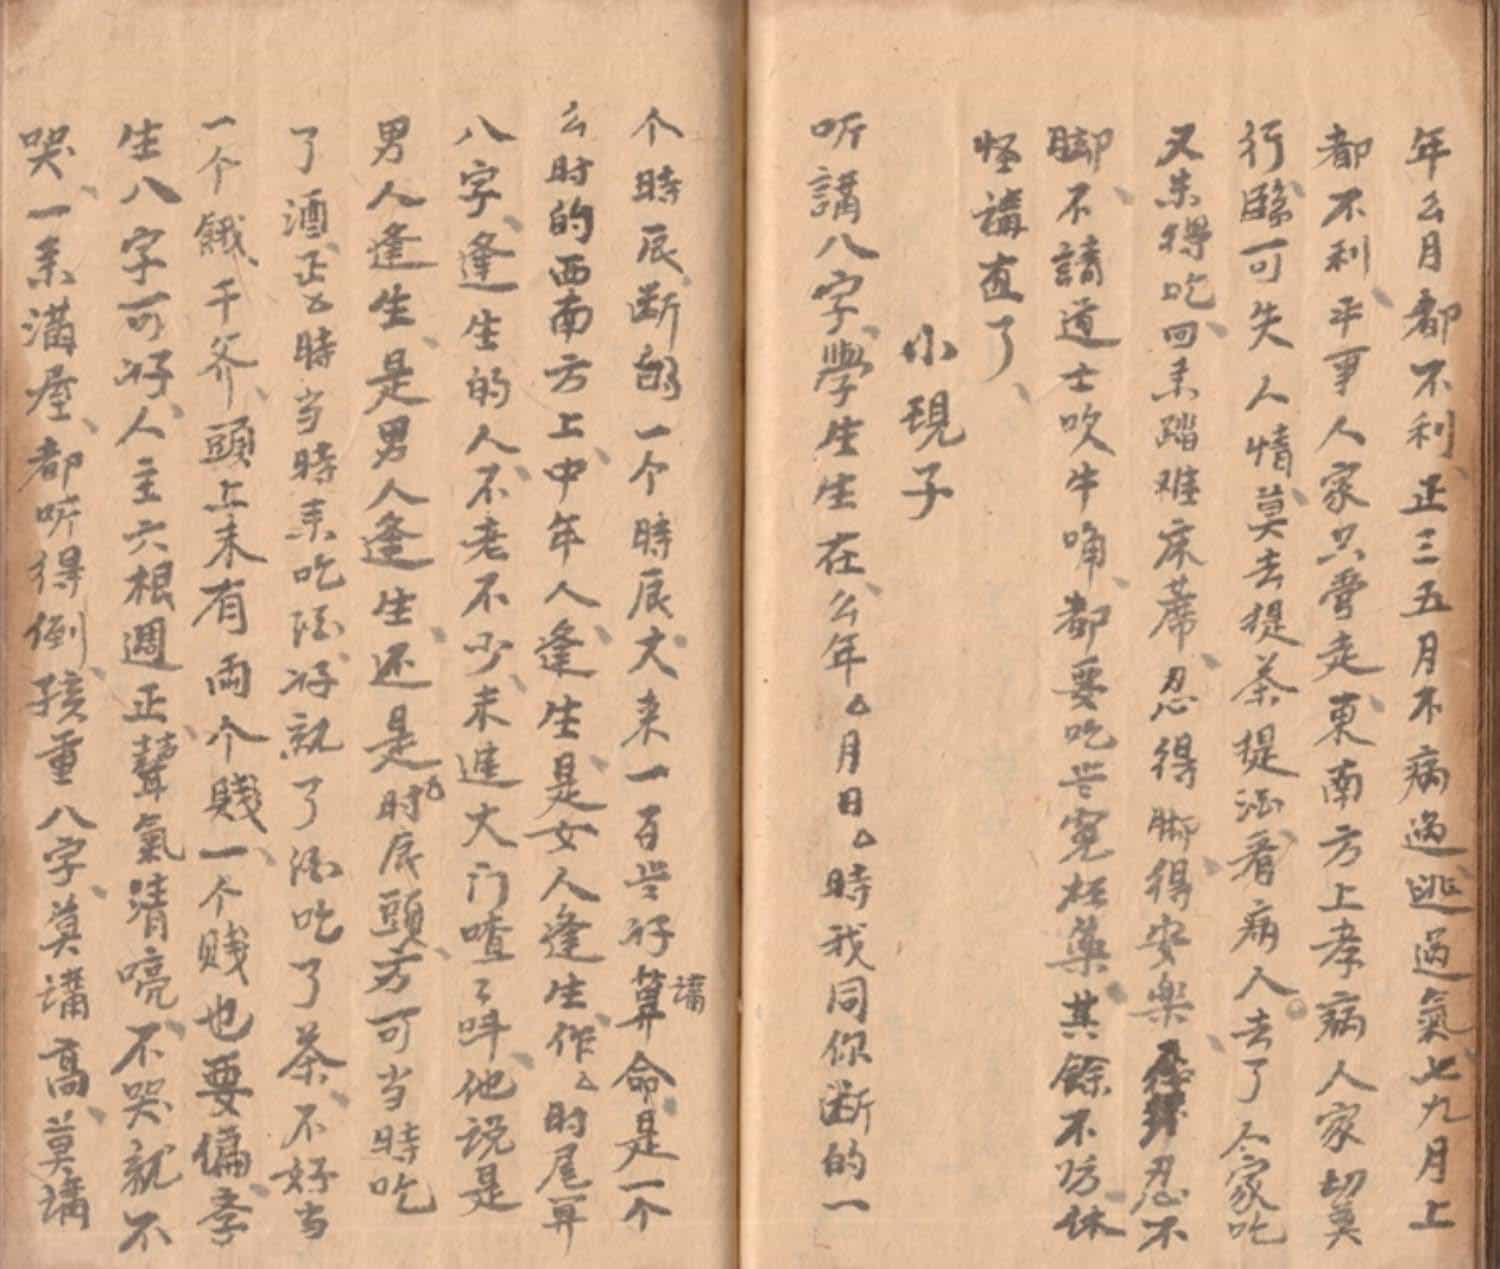 年么月都不利正三五月不病過逃過氣七九月上
都不利平事人家只管走東南方上孝病人家切莫
行臨可失人情莫去提茶提酒看病人去了人家吃
又未得吃回來踏难床蓆忍得脚得安樂忍不
脚不請道士吹牛角都要吃些冤枉藥其餘不防休
怪講直了
小現子
听講八字學生生在么年△月日△時我同你断的一
个時辰断的一个時辰大来一百些好算講命是一个
么时的西南方上中年人逢生是女人逢生作△时尾算
八字逢生的人不老不少未進大门喳々叫他说是
男人逢生是男人逢生还是时△辰頭方可当時吃
了酒正△時当時未吃酒好就了酒吃了茶不好当
一个餓干爷頭上未有両个賤一个賤也要偏房
生八字可好人主六根週正聲氣清喨不哭就不
哭一来滿屋都听得倒孩童八字莫講高莫講